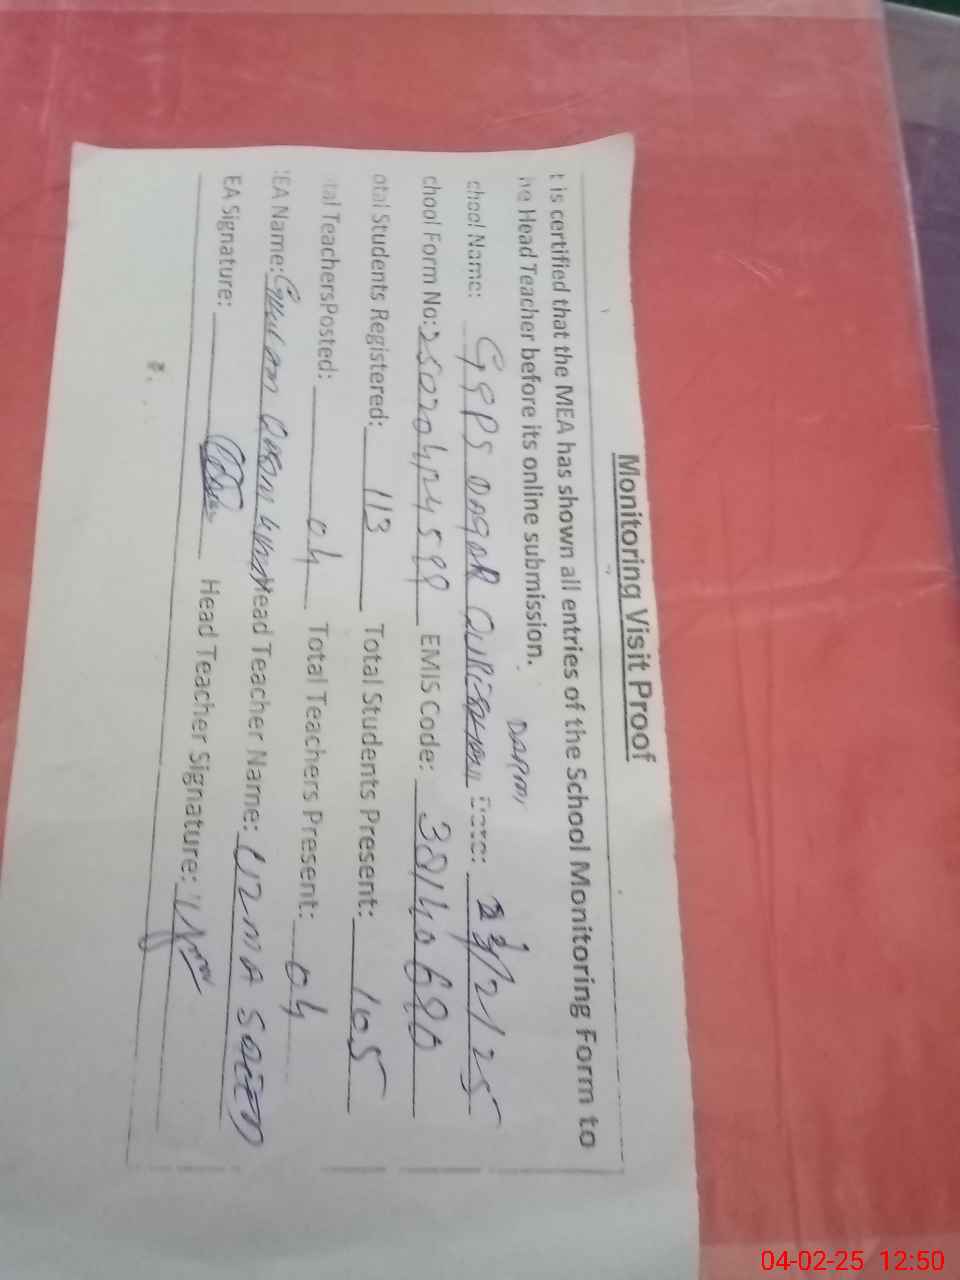 Monitoring Visit Proof
t is certified that the MEA has shown all entries of the School Monitoring Form to
he Head Teacher before its online submission.
DARMI
chool Name: GGPS DAGAR Date: /2/25
chool Form No: EMIS Code: 38140680
otal Students Registered: 113 Total Students Present: 105
tal TeachersPosted: 04 Total Teachers Present: 04
EA Name: Ghulam Head Teacher Name: UZMA SAEED
EA Signature: Head Teacher Signature:
04-02-25 12:50